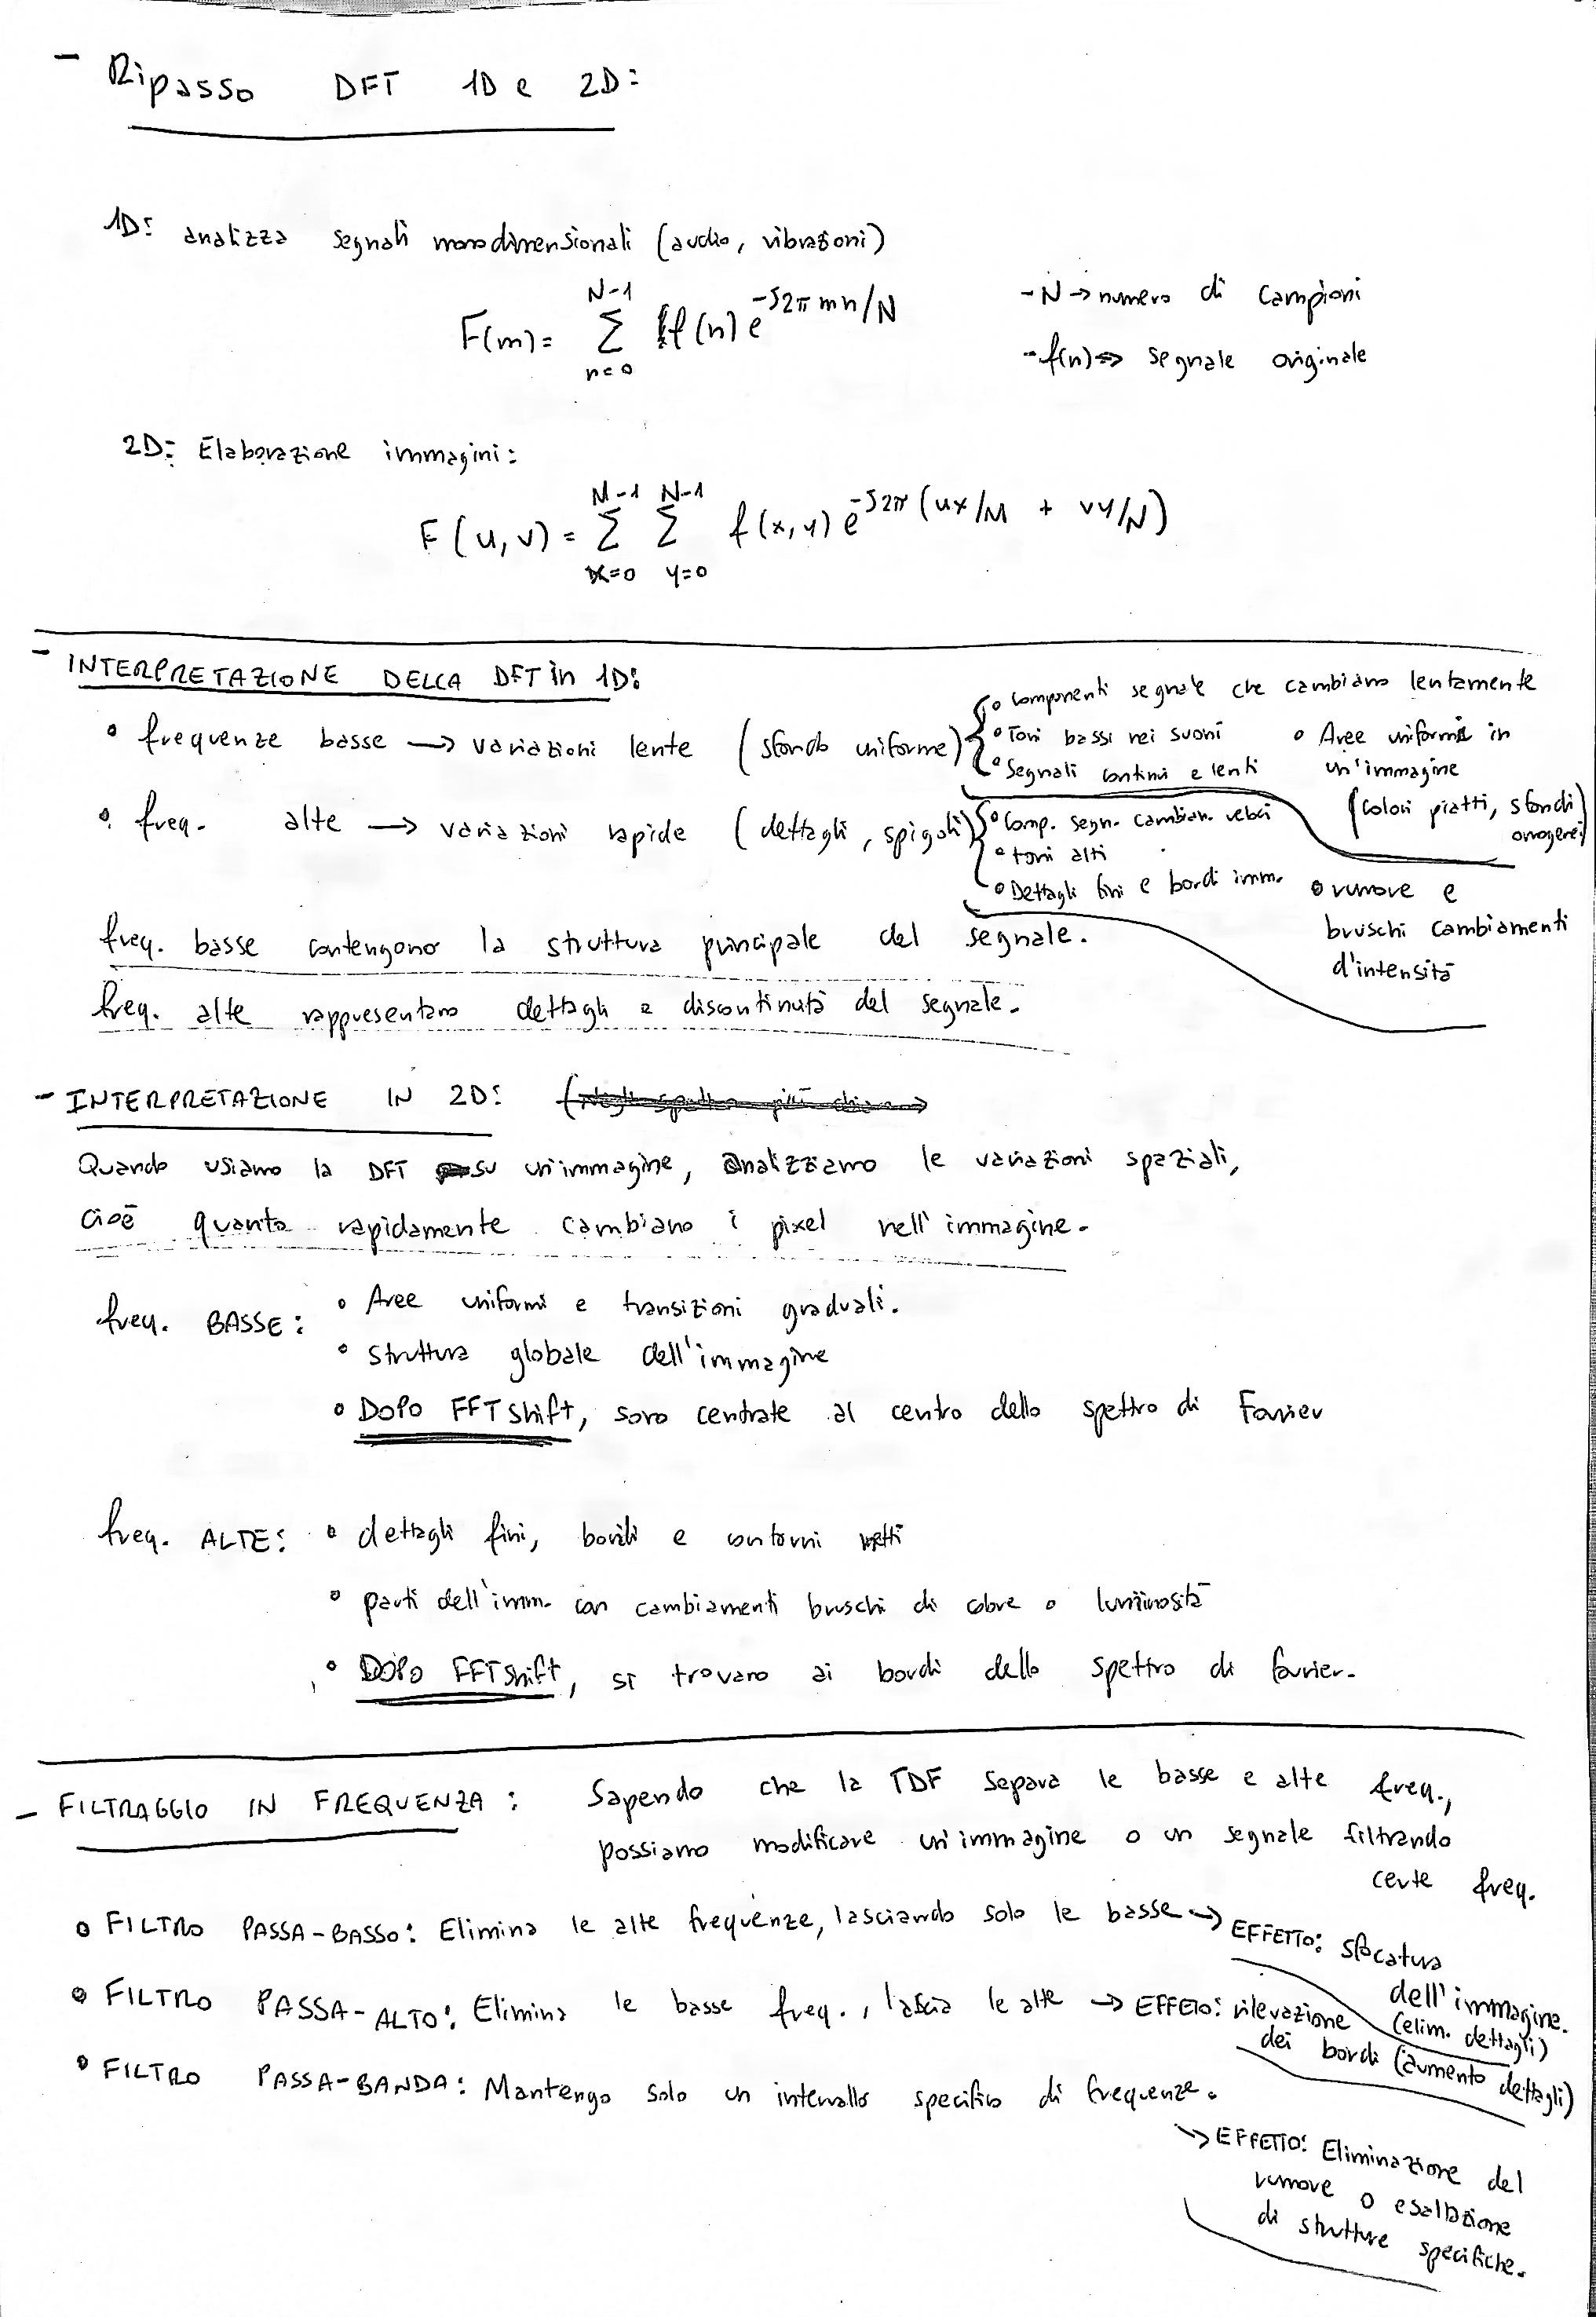 - Ripasso DFT 1D e 2D:
1D: analizza segnali monodimensionali (audio, vibrazioni)
F(m) = Σ_{n=0}^{N-1} f(n) e^{-j2π mn/N}
- N → numero di campioni
- f(n) => segnale originale
2D: Elaborazione immagini:
F(u,v) = Σ_{x=0}^{M-1} Σ_{y=0}^{N-1} f(x,y) e^{-j2π (ux/M + vy/N)}
- INTERPRETAZIONE DELLA DFT in 1D:
• frequenze basse → variazioni lente (sfondo uniforme)
• Componenti segnale che cambiano lentamente
• Toni bassi nei suoni
• Segnali continui e lenti
• Aree uniformi in
un'immagine
(colori piatti, sfondi
omogenei)
• freq. alte → variazioni rapide (dettagli, spigoli)
• Comp. segn. cambian. veloci
• toni alti
• Dettagli fini e bordi imm.
• rumore e
bruschi cambiamenti
d'intensità
freq. basse contengono la struttura principale del segnale.
freq. alte rappresentano dettagli e discontinuità del segnale.
- INTERPRETAZIONE IN 2D:
Quando usiamo la DFT su un'immagine, analizziamo le variazioni spaziali,
cioè quanto rapidamente cambiano i pixel nell'immagine.
freq. BASSE: • Aree uniformi e transizioni graduali.
• struttura globale dell'immagine
• DOPO FFTshift, sono centrate al centro dello spettro di Fourier
freq. ALTE: • dettagli fini, bordi e contorni netti
• parti dell'imm. con cambiamenti bruschi di colore o luminosità
• DOPO FFTshift, si trovano ai bordi dello spettro di fourier.
- FILTRAGGIO IN FREQUENZA: Sapendo che la TDF separa le basse e alte freq.,
possiamo modificare un'immagine o un segnale filtrando
certe freq.
• FILTRO PASSA-BASSO: Elimina le alte frequenze, lasciando solo le basse → EFFETTO: sfocatura
dell'immagine.
(elim. dettagli)
• FILTRO PASSA-ALTO: Elimina le basse freq., lascia le alte → EFFETO: rilevazione
dei bordi (aumento dettagli)
• FILTRO PASSA-BANDA: Mantengo solo un intervallo specifico di frequenze.
→ EFFETTO: Eliminazione del
rumore o esaltazione
di strutture specifiche.